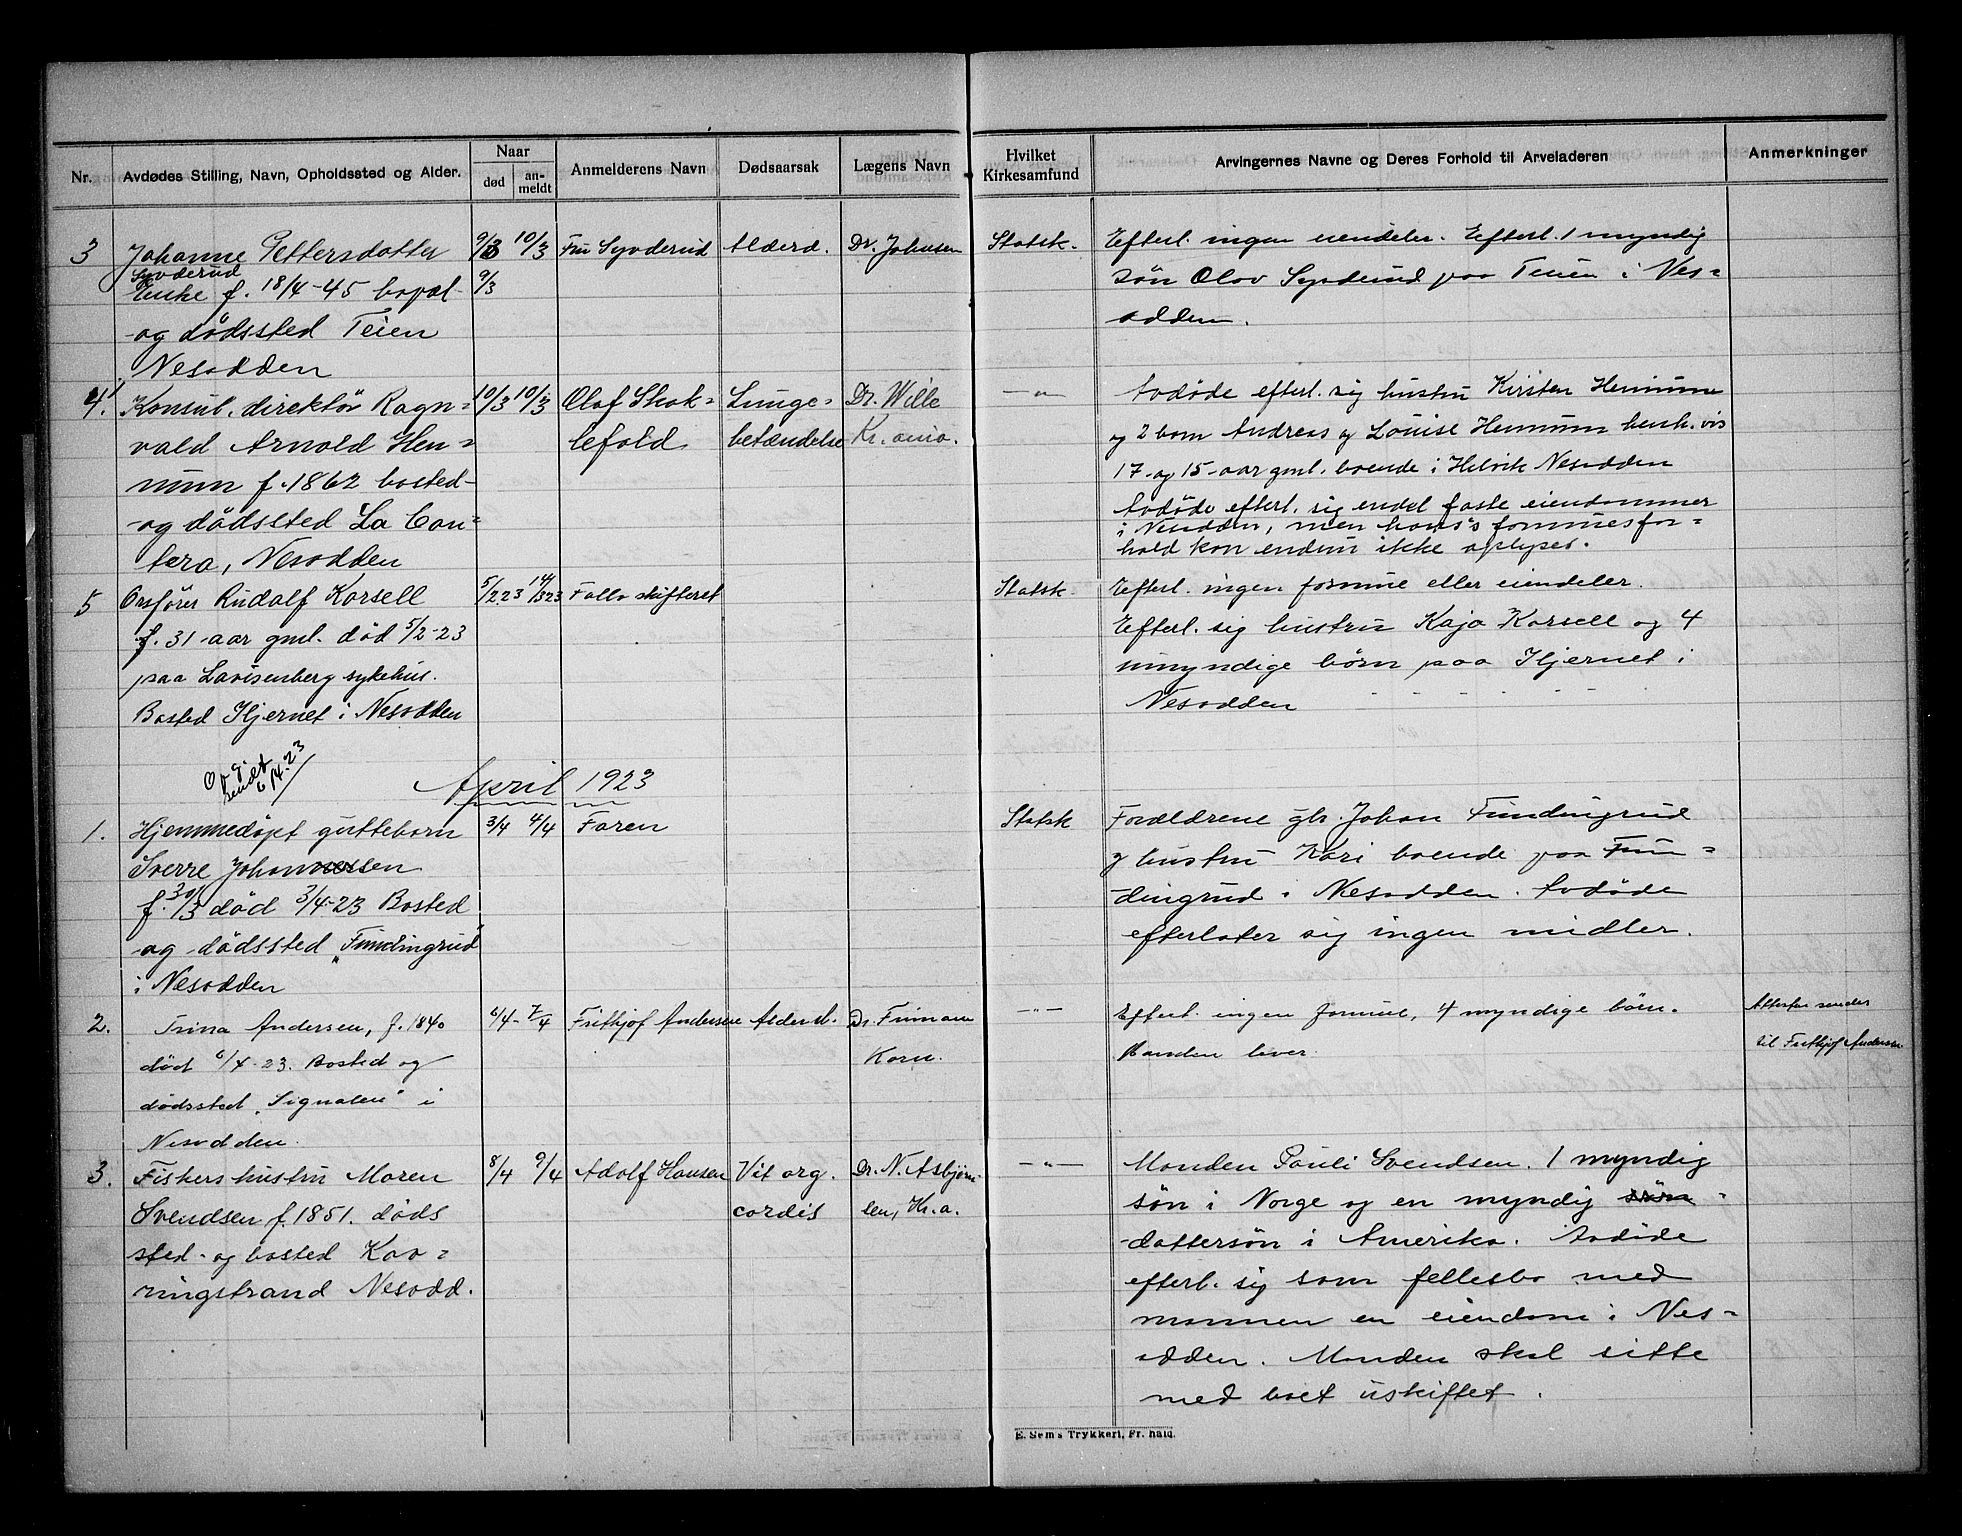 Nr.
Avdødes Stilling, Navn, Opholdssted og Alder.
Naar
død
an-
meldt
Anmelderens Navn
Dødsaarsak
Lægens Navn
Hvilket
Kirkesamfund
Arvingernes Navne og Deres Forhold til Arveladeren
Anmerkninger
3 Johanne Pettersdatter 9/3 10/3 Fru Syvderud Alderd. Dr. Johnsen Statsk. Efterl. ingen eiendeler. Efterl. 1 myndig
Syvderud
Enke f. 18/4-45 bopæl- 9/3 søn Olov Syvderud paa Teien i Nes-
og dødssted Teien odden.
Nesodden
4. Konsul, direktør Ragn- 10/3 10/3 Olaf Skok- Lunge- Dr. Wille —"— Avdøde efterl. sig hustru Kirsten Hennum
vald Arnold Hen- lefald betændelse Kr.ania. og 2 barn Andreas og Louise Hennum henh.vis
num f. 1862 bosted- 17 og 15 aar gml. boende i Helvik Nesodden
og dødssted La Can- Avdøde efterl. sig endel faste eiendommer
i Nesodden, men hans's formuesfor-
tera, Nesodden hold kan endnu ikke oplyses.
5 Rudolf Korsell 5/2 23 14/3 23 Follo skifteret Statsk. Efterl. ingen formue eller eiendeler.
f. 31 aar gml. død 5/2-23 Efterl. sig hustru Kaja Korsell og 4
paa Lovisenberg sykehus. umyndige børn paa Hjernet i
Bosted Hjernet i Nesodden Nesodden
Opg.
sendt
6/4-23
April 1923
1. Hjemmedøpt guttebarn 3/4 4/4 Faren Statsk Forældrene gbr. Johan Fundingrud
Sverre Johansen og hustru Kari boende paa Fun-
f. 30/3 død 3/4-23 Bosted dingrud i Nesodden. Avdøde
og dødssted "Fundingrud" efterlater sig ingen midler.
i Nesodden
2. Trina Andersen, f. 1840 6/4- 7/4 Frithjof Andersen Alderd. Dr. —"— Efterl. ingen formue, 4 myndige børn. Attesten sendes
død 6/4-23. Bosted og Korn. Manden lever. til Frithjof Andersen
dødssted "Signalen" i
Nesodden.
3. Fiskers hustru Maren 8/4 9/4 Adolf Hansen Vit org. Dr. N. Asbjørn- —"— Manden Pauli Svendsen. 1 myndig
Svendsen f. 1851. døds cordis sen, Kr.a. søn i Norge og en myndig søn
sted- og bosted Kav- dattersøn i Amerika. Avdøde
ringstrand Nesodd. efterl. sig som fellesbo med
mannen en eiendom i Nes-
odden. Manden skal sitte
med boet uskiftet.
E. Sem's Trykkeri, Fr.hald.